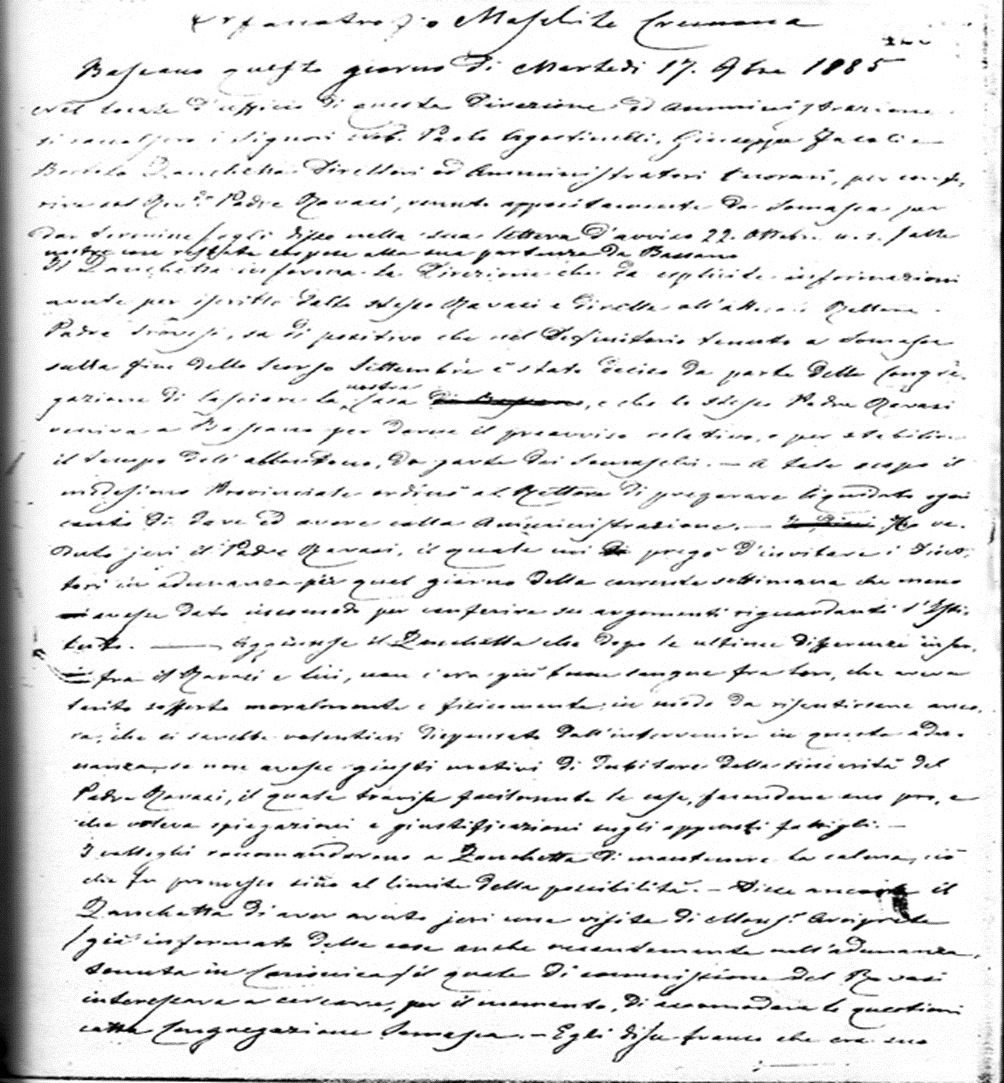 Orfanotrofio Maschile Cremona
Bassano questo giorno di Martedì 17. 9bre 1885
Nel locale d'ufficio di questa Direzione ed Amministrazione
si raccolsero i Signori Nob. Paolo Agostinelli, Giuseppe Jacolin
Bortolo Zanchetta Direttori ed Amministratori onorari, per confe-
rire col Rev.° Padre Ravasi, venuto appositamente da Somasca per
dar termine, segli disse nella sua lettera d'avviso 22. Ottobre u. s. f alle
nostre cose restate sospese alla sua partenza da Bassano
Il Zanchetta informa la Direzione che da esplicite informazioni
avute per iscritto dallo stesso Ravasi e dirette all'attuale Rettore
Padre, sa di positivo che nel Definitorio tenuto a Somasca
sulla fine dello scorso Settembre è stato deciso da parte della Congre-
gazione di lasciare la nostra Casa di Bassano, e che lo stesso Padre Ravasi
veniva a Bassano per darne il preavviso relativo, e per stabilire
il tempo dell'abbandono, da parte dei Somaschi. — A tale scopo il
medesimo Provinciale ordinò al Rettore di preparare liquidato ogni
conto di dare ed avere colla Amministrazione. — ve-
duto jeri il Padre Ravasi, il quale mi pregò d'invitare i Diret-
tori in adunanza per quel giorno della corrente settimana che meno
avesse dato incomodo per conferire su argomenti riguardanti l'Isti-
tuto. — Aggiunse il Zanchetta che dopo le ultime differenze insor-
te fra il Ravasi e lui, non c'era più buon sangue fra loro, che aveva
tanto sofferto moralmente e fisicamente in modo da risentirsene anco-
ra; che si sarebbe volentieri dispensato dall'intervenire in questa adu-
nanza, se non avesse giusti motivi di dubitare della sincerità del
Padre Ravasi, il quale travisa facilmente le cose, facendone uso pro, e
che voleva spiegazioni e giustificazioni sugli appunti fattigli. —
I colleghi raccomandarono a Zanchetta di mantenere la calma, ciò
che fu promesso sino al limite della possibilità. — Disse ancora il
Zanchetta di aver avuto jeri una visita di Mons.r Arciprete
(già informato delle cose anche recentemente nell'adunanza
tenuta in Canonica) il quale di commissione del Ravasi
interessava a cercare, per il momento, di accomodare le questioni
colla Congregazione Somasca. — Egli disse franco che era suo